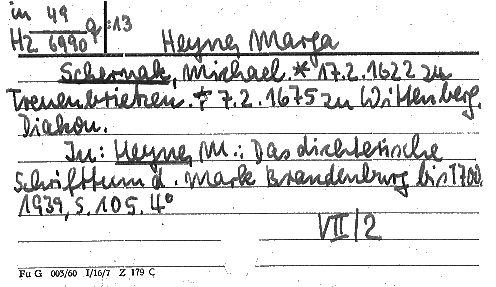 in 49
Hz 6990 q :13
Heyne, Marga
Schernak, Michael. * 17.2.1622 zu
Treuenbrietzen. † 7.2.1675 zu Wittenberg.
Diakon.
In: Heyne, M.: Das dichterische
Schrifttum d. Mark Brandenburg bis 1700.
1939, S. 105. 4°
VII/2
Fu G 005/60 I/16/7 Z 179 C